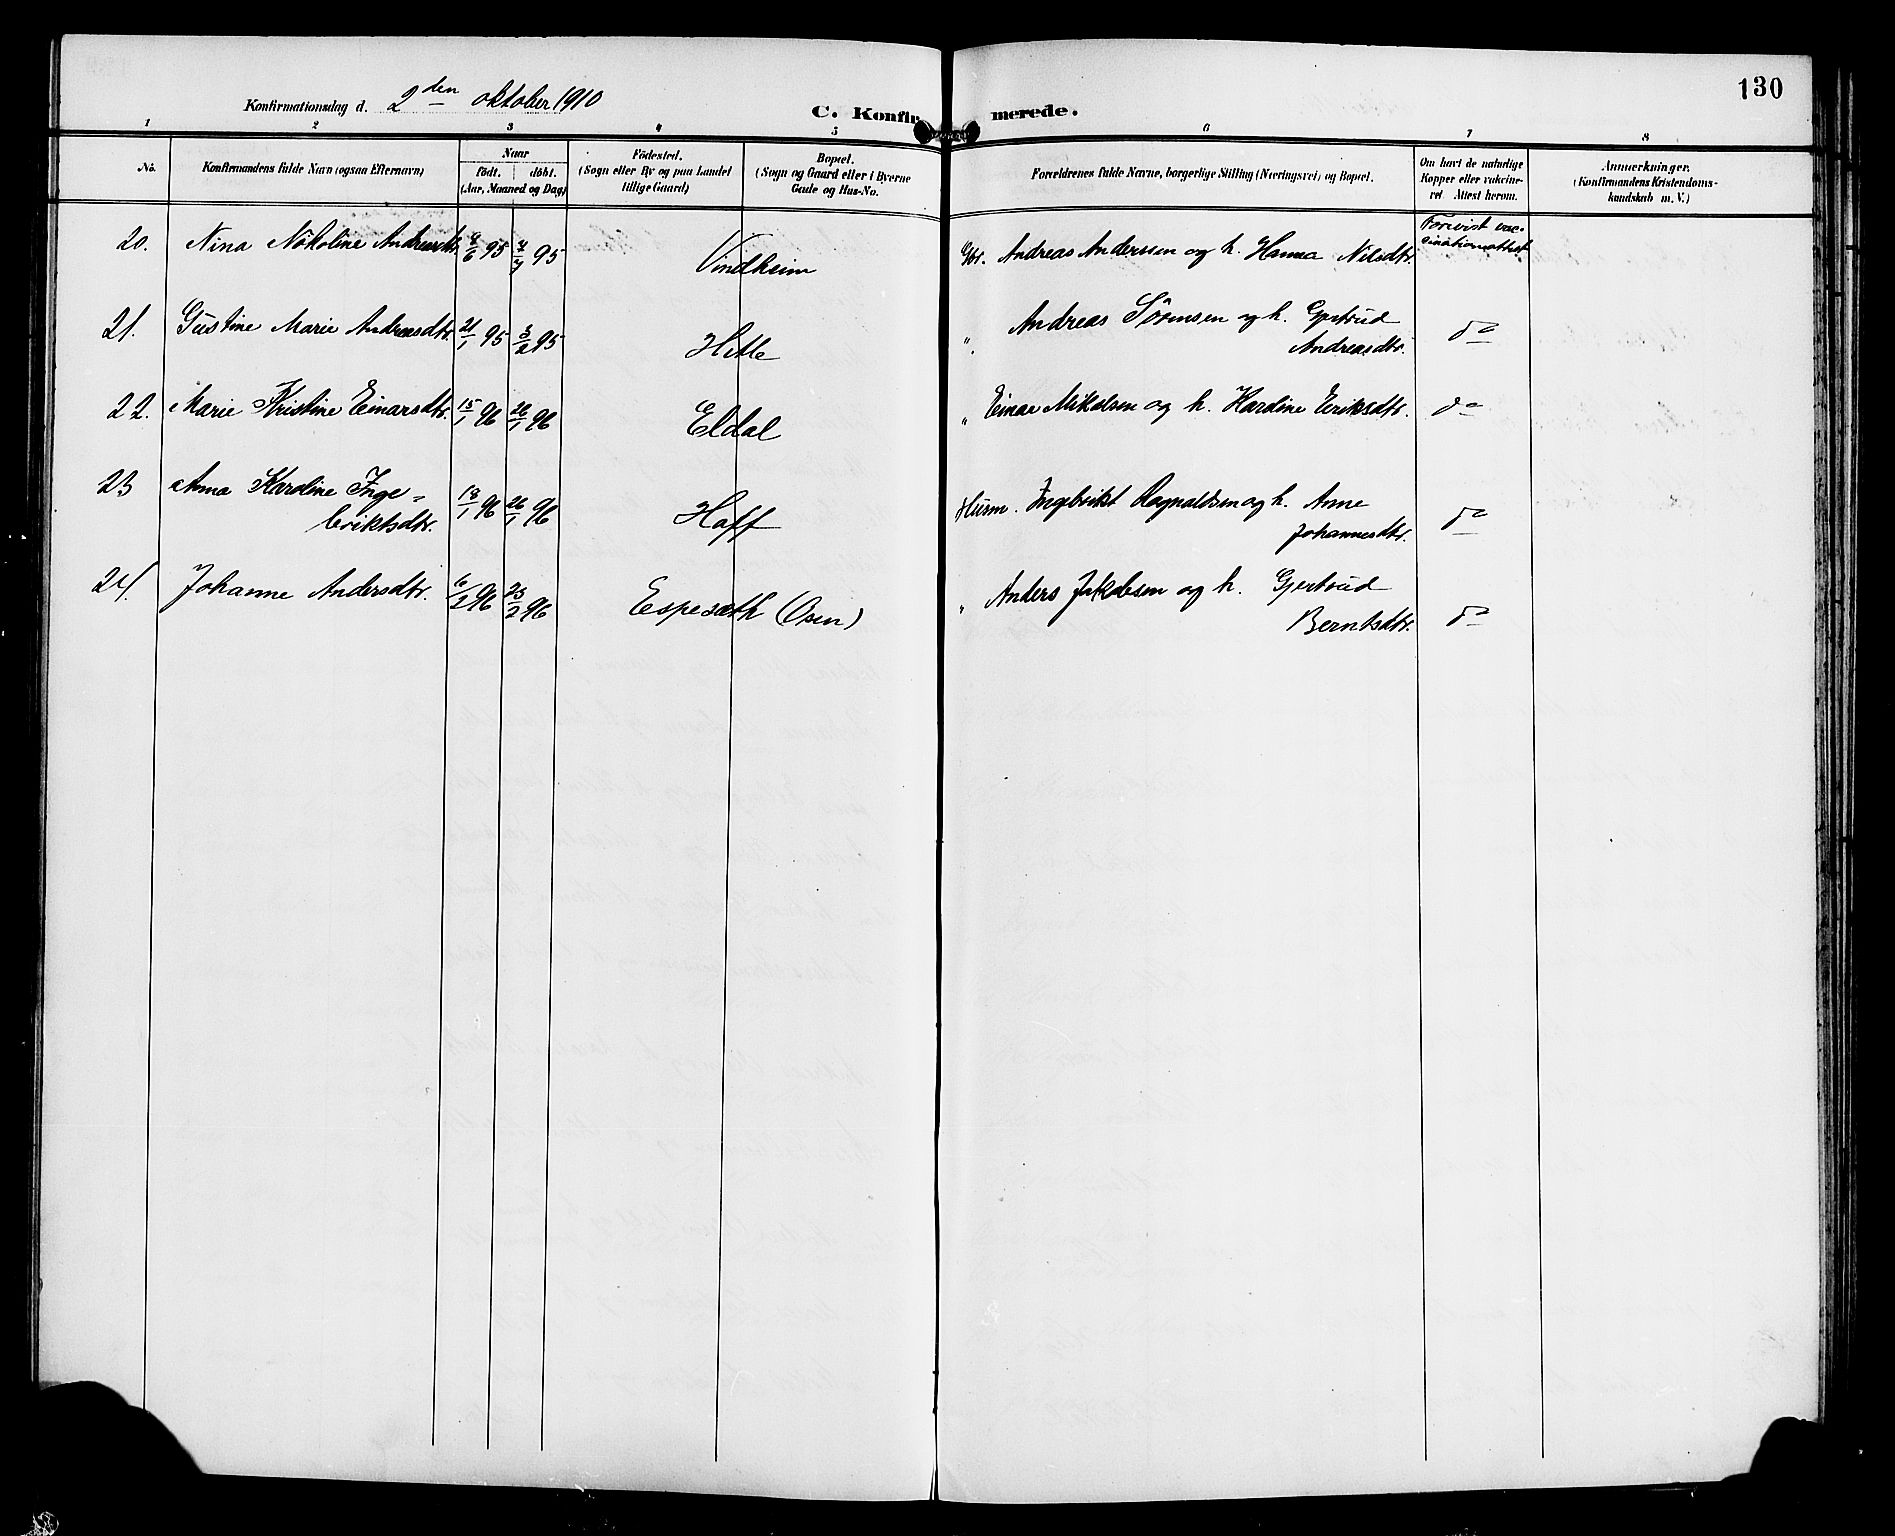 130
Konfirmationsdag d. 2den oktober 1910
C. Konfirmerede.
1 2 3 4 5 6 7 8
No.
Konfirmandens fulde Navn (ogsaa Efternavn)
Naar
födt. döbt.
(Aar, Maaned og Dag)
Födested.
(Sogn eller By og paa Landet
tillige Gaard)
Bopæl.
(Sogn og Gaard eller i Byerne
Gade og Hus-No.
Forældrenes fulde Navne, borgerlige Stilling (Næringsvei) og Bopæl.
Om havt de naturlige
Kopper eller vakcine-
ret. Attest herom.
Anmærkninger.
(Konfirmandens Kristendoms-
kundskab m. V.)
20. Nina Nikoline Andreasdtr. 95 95 Vindheim Gbr. Andreas Anderssen og h. Hanna Nilsdtr. Forevist vac-
cinationsattest
21. Gustine Marie Andreasdtr. 21/1 95 3/2 95 Hitle " Andreas Sörensen og h. Gjertrud
Andreasdtr. do
22. Marie Kristine Einarsdtr. 15/1 96 26/1 96 Eldal " Einar Mikelsen og h. Hardine Eriksdtr. do
23 Anna Karoline Inge-
briktsdtr. 18/1 96 26/1 96 Hoff Husm. Ingebrikt Ragnaldsen og h. Anne
Johannesdtr. do
24. Johanne Andersdtr. 6/2 96 23/2 96 Espesæth (Osen) " Anders Jakobsen og h. Gjertrud
Berntsdtr. do